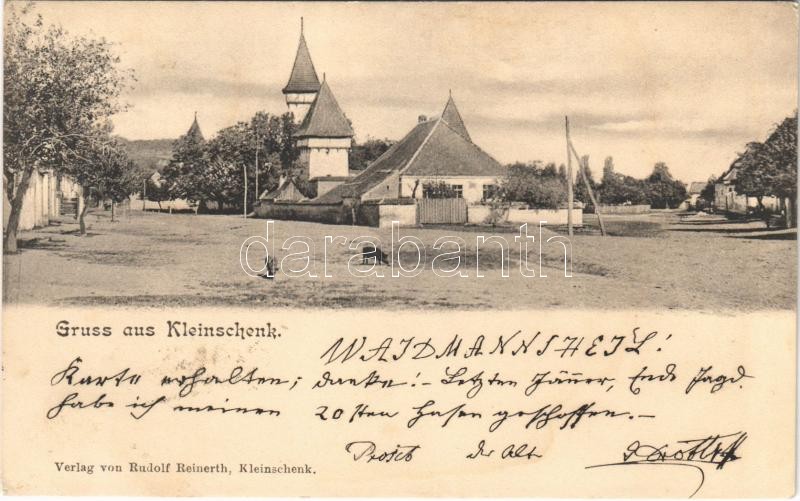 darabanth
Gruss aus Kleinschenk.
WAIDMANNSHEIL!
Karte erhalten; danke! - Letzten Jänner, Ende Jagd.
habe ich meinen 20sten Hasen geschossen. -
Prosit der Alte
Verlag von Rudolf Reinerth, Kleinschenk.